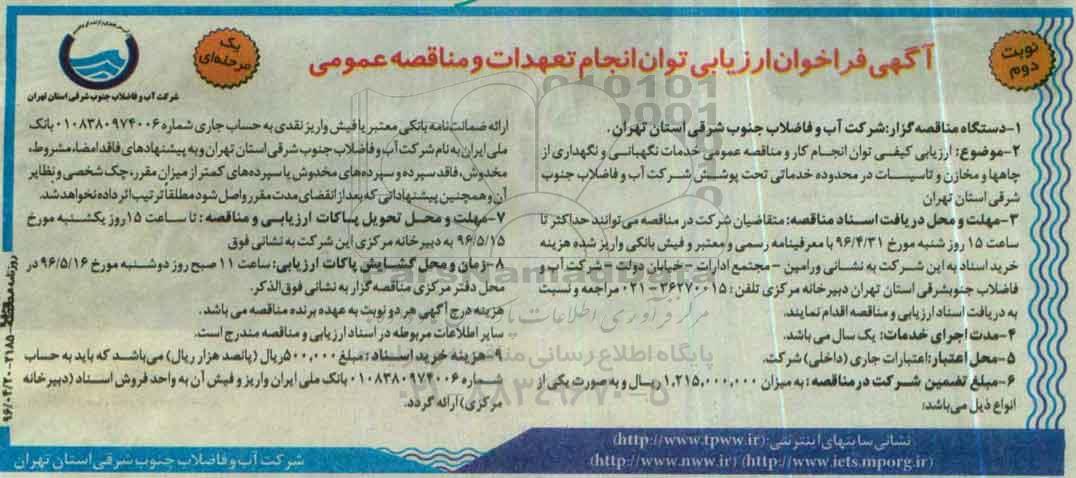 آگهی فراخوان ارزیابی توان انجام تعهدات و مناقصه عمومی
نوبت
دوم
یک
مرحله‌ای
شرکت آب و فاضلاب جنوب شرقی استان تهران
۱-دستگاه مناقصه گزار: شرکت آب و فاضلاب جنوب شرقی استان تهران.
۲-موضوع: ارزیابی کیفی توان انجام کار و مناقصه عمومی خدمات نگهبانی و نگهداری از
چاهها و مخازن و تاسیسات در محدوده خدماتی تحت پوشش شرکت آب و فاضلاب جنوب
شرقی استان تهران
۳-مهلت و محل دریافت اسناد مناقصه: متقاضیان شرکت در مناقصه می‌توانند حداکثر تا
ساعت ۱۵ روز شنبه مورخ ۹۶/۴/۳۱ با معرفینامه رسمی و معتبر و فیش بانکی واریز شده هزینه
خرید اسناد به این شرکت به نشانی ورامین -مجتمع ادارات -خیابان دولت -شرکت آب و
فاضلاب جنوبشرقی استان تهران دبیرخانه مرکزی تلفن: ۳۶۲۷۰۰۱۵ - ۰۲۱ مراجعه و نسبت
به دریافت اسناد ارزیابی و مناقصه اقدام نمایند.
۴-مدت اجرای خدمات: یک سال می باشد.
۵-محل اعتبار: اعتبارات جاری (داخلی) شرکت.
۶-مبلغ تضمین شرکت در مناقصه: به میزان ۱,۲۱۵,۰۰۰,۰۰۰ ریال و به صورت یکی از
انواع ذیل می‌باشد:
ارائه ضمانت نامه بانکی معتبر یا فیش واریز نقدی به حساب جاری شماره ۰۱۰۸۳۸۰۹۷۴۰۰۶ بانک
ملی ایران به نام شرکت آب و فاضلاب جنوب شرقی استان تهران و به پیشنهادهای فاقد امضا، مشروط،
مخدوش، فاقد سپرده و سپرده‌های مخدوش یا سپرده‌های کمتر از میزان مقرر، چک شخصی و نظایر
آن و همچنین پیشنهاداتی که بعد از انقضای مدت مقرر واصل شود مطلقا ترتیب اثر داده نخواهد شد.
۷-مهلت و محل تحویل پاکات ارزیابی و مناقصه: تا ساعت ۱۵ روز یکشنبه مورخ
۹۶/۵/۱۵ به دبیرخانه مرکزی این شرکت به نشانی فوق
۸-زمان و محل گشایش پاکات ارزیابی: ساعت ۱۱ صبح روز دوشنبه مورخ ۹۶/۵/۱۶ در
محل دفتر مرکزی مناقصه گزار به نشانی فوق الذکر.
هزینه درج آگهی هر دو نوبت به عهده برنده مناقصه می باشد.
سایر اطلاعات مربوطه در اسناد ارزیابی و مناقصه مندرج است.
۹-هزینه خرید اسناد: مبلغ ۵۰۰,۰۰۰ ریال (پانصد هزار ریال) می‌باشد که باید به حساب
شماره ۰۱۰۸۳۸۰۹۷۴۰۰۶ بانک ملی ایران واریز و فیش آن به واحد فروش اسناد (دبیرخانه
مرکزی) ارائه گردد.
نشانی سایتهای اینترنتی: (http://www.tpww.ir)
(http://www.nww.ir) (http://www.iets.mporg.ir)
شرکت آب و فاضلاب جنوب شرقی استان تهران
۹۶/۰۴/۲۰
مرکز فرآوری اطلاعات
پایگاه اطلاع رسانی